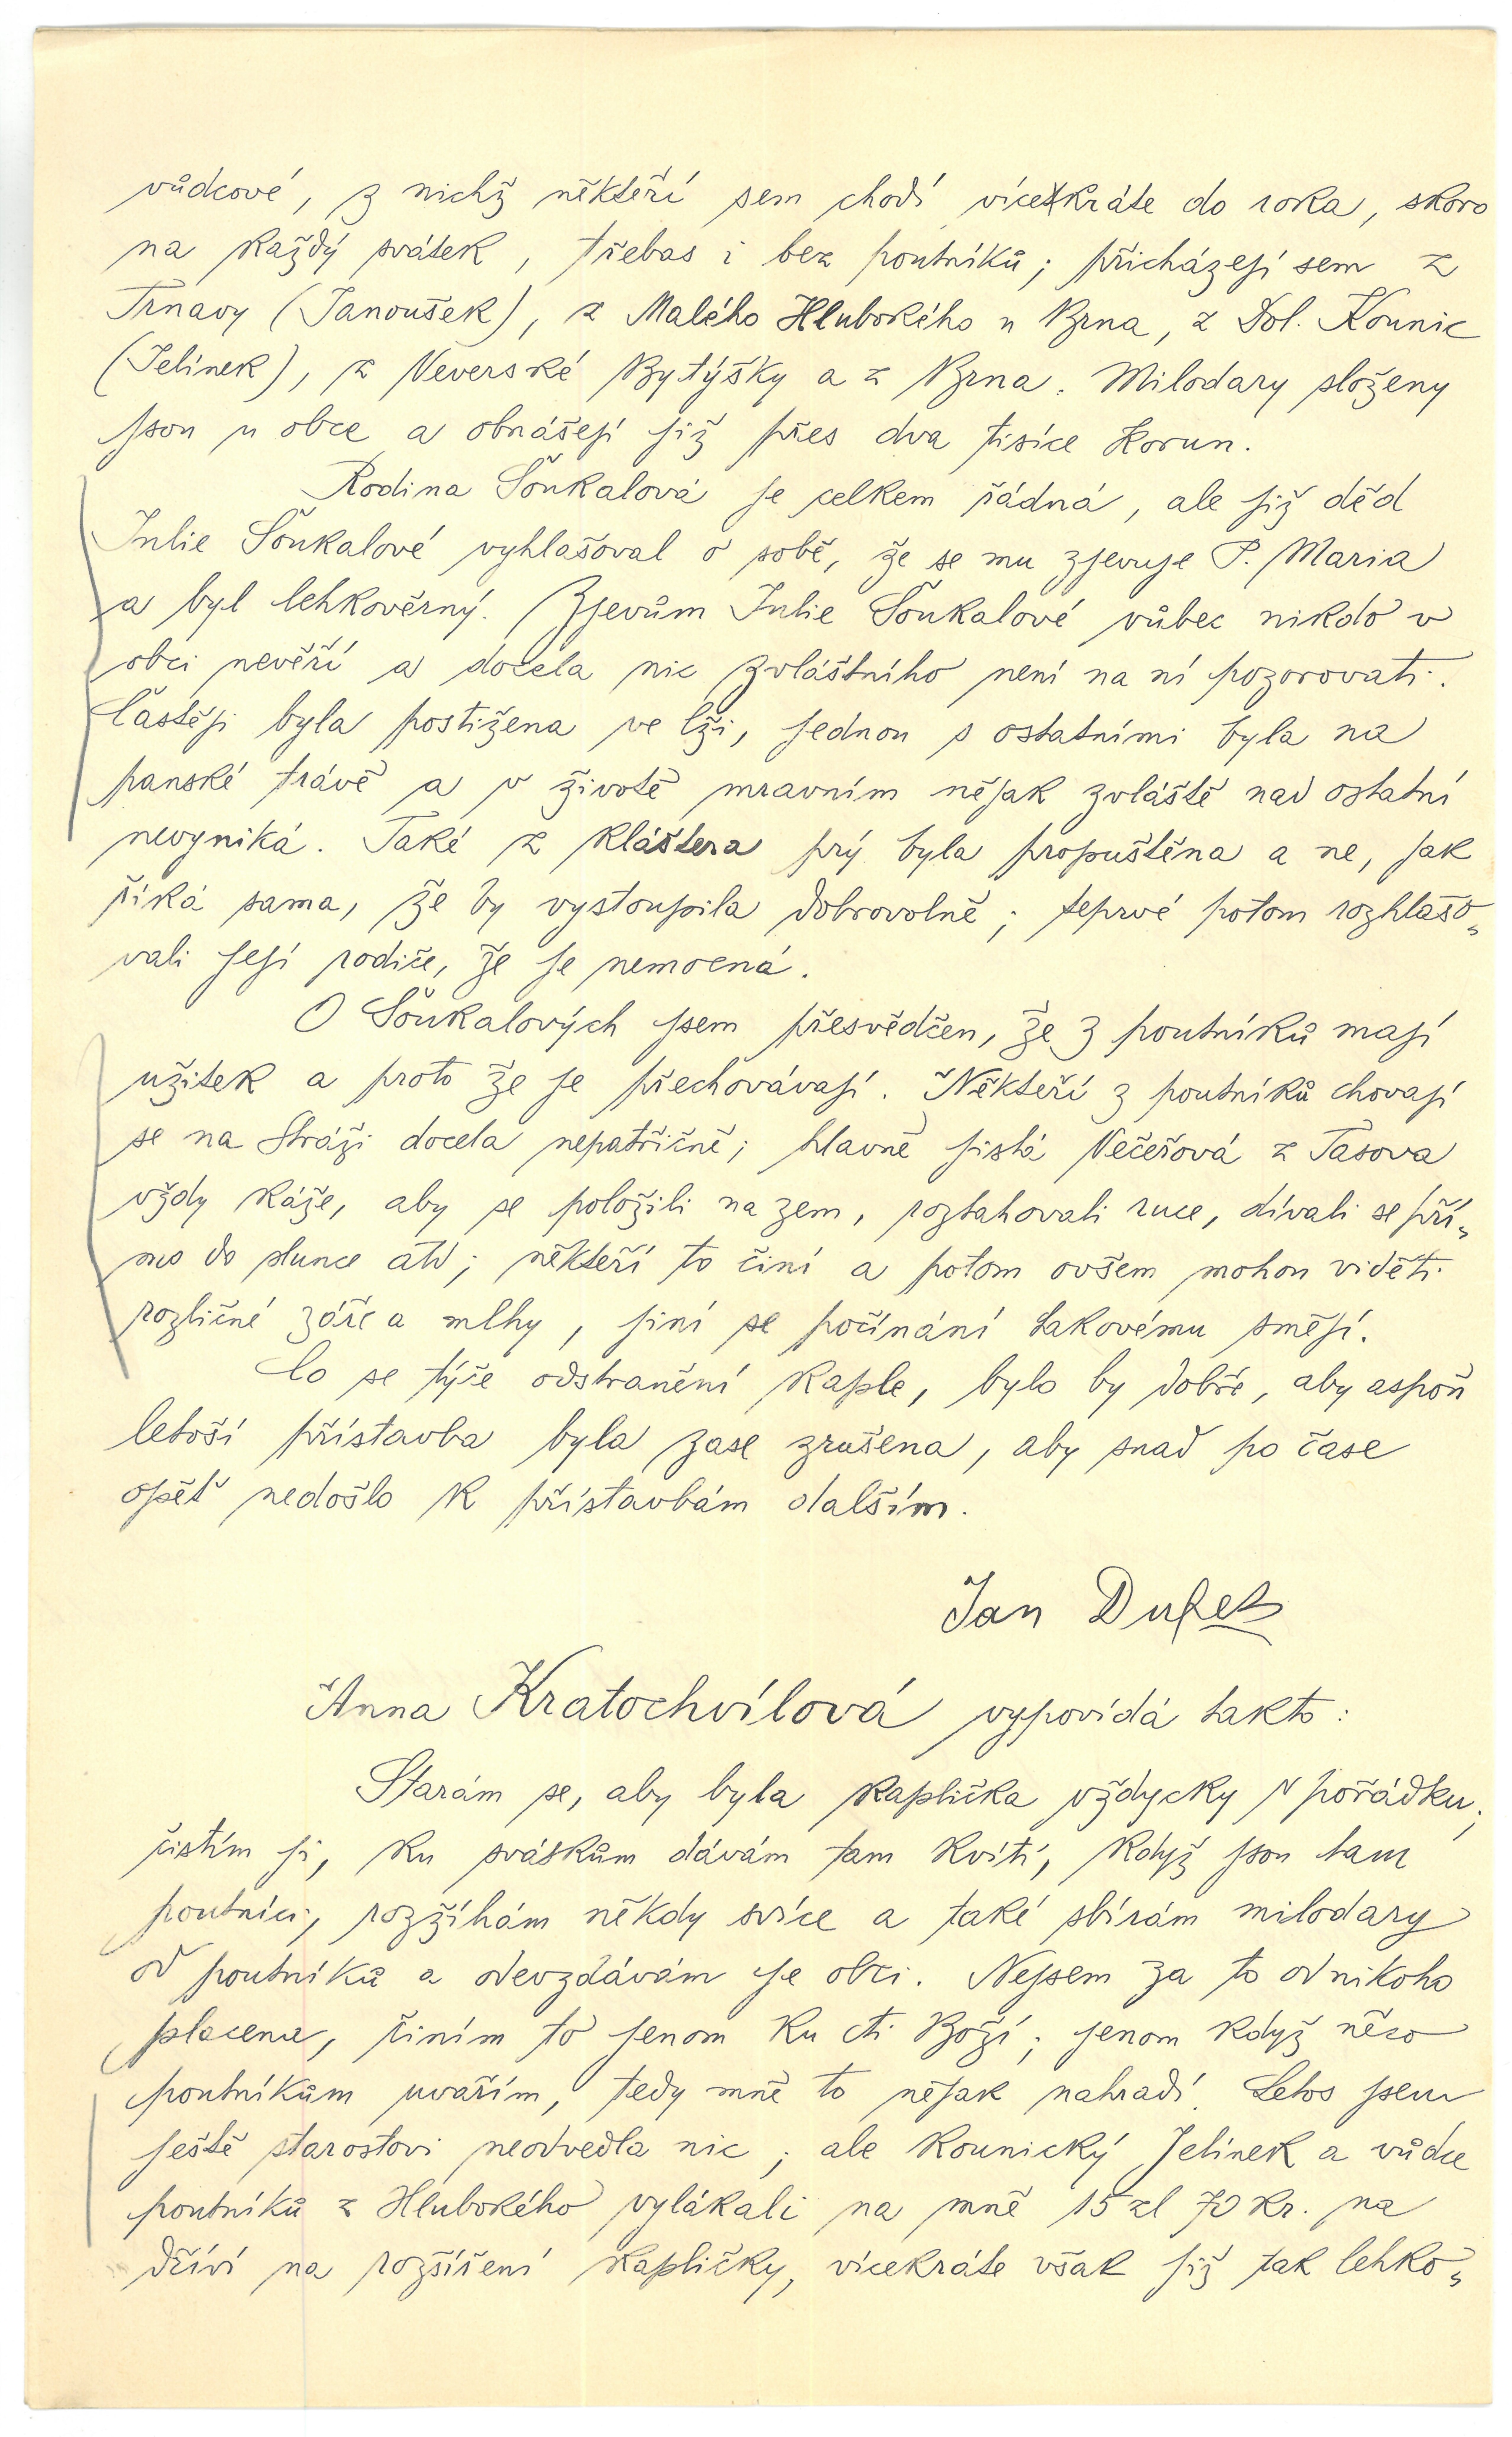 vůdcové, z nichž někteří sem chodí vícekráte do roka, skoro
na každý svátek, třebas i bez poutníků; přicházejí sem z
Trnavy (Janoušek), z Malého Hlubokého u Brna, z Dol. Kounic
(Jelínek), z Veverské Bytýšky a z Brna. Milodary složeny
jsou u obce a obnášejí již přes dva tisíce korun.
Rodina Šoukalová je celkem řádná, ale již děd
Julie Šoukalové vyhlašoval o sobě, že se mu zjevuje P. Maria
a byl lehkověrný. Zjevům Julie Šoukalové vůbec nikdo v
obci nevěří a docela nic zvláštního není na ní pozorovati.
Častěji byla postižena ve lži, jednou s ostatními byla na
panské trávě a v životě mravním nějak zvláště nad ostatní
nevyniká. Také z kláštera prý byla propuštěna a ne, jak
říká sama, že by vystoupila dobrovolně; teprvé potom rozhlašo„
vali její rodiče, že je nemocná.
O Šoukalových jsem přesvědčen, že z poutníků mají
užitek a proto že je přechovávají. Někteří z poutníků chovají
se na Stráži docela nepatřičně; hlavně jistá Večeřová z Tasova
vždy káže, aby se položili na zem, roztahovali ruce, dívali se pří„
mo do slunce atd; někteří to činí a potom ovšem mohou viděti
rozličné záře a mlhy, jiní se počínání takovému smějí.
Co se týče odstranění kaple, bylo by dobře, aby aspoň
letoší přístavba byla zase zrušena, aby snad po čase
opět nedošlo k přístavbám dalším.
Jan Dufek
Anna Kratochvílová vypovídá takto:
Starám se, aby byla kaplička vždycky v pořádku;
čistím ji, ku svátkům dávám tam kvítí, když jsou tam
poutníci, rozžíhám někdy svíce a také sbírám milodary
od poutníků a odevzdávám je obci. Nejsem za to od nikoho
placena, činím to jenom ku cti Boží; jenom když něco
poutníkům uvařím, tedy mně to nějak nahradí. Letos jsem
ještě starostovi neodvedla nic; ale kounický Jelínek a vůdce
poutníků z Hlubokého vylákali na mně 15 zl 70 kr. na
dříví na rozšíření kapličky, vícekráte však již tak lehko„